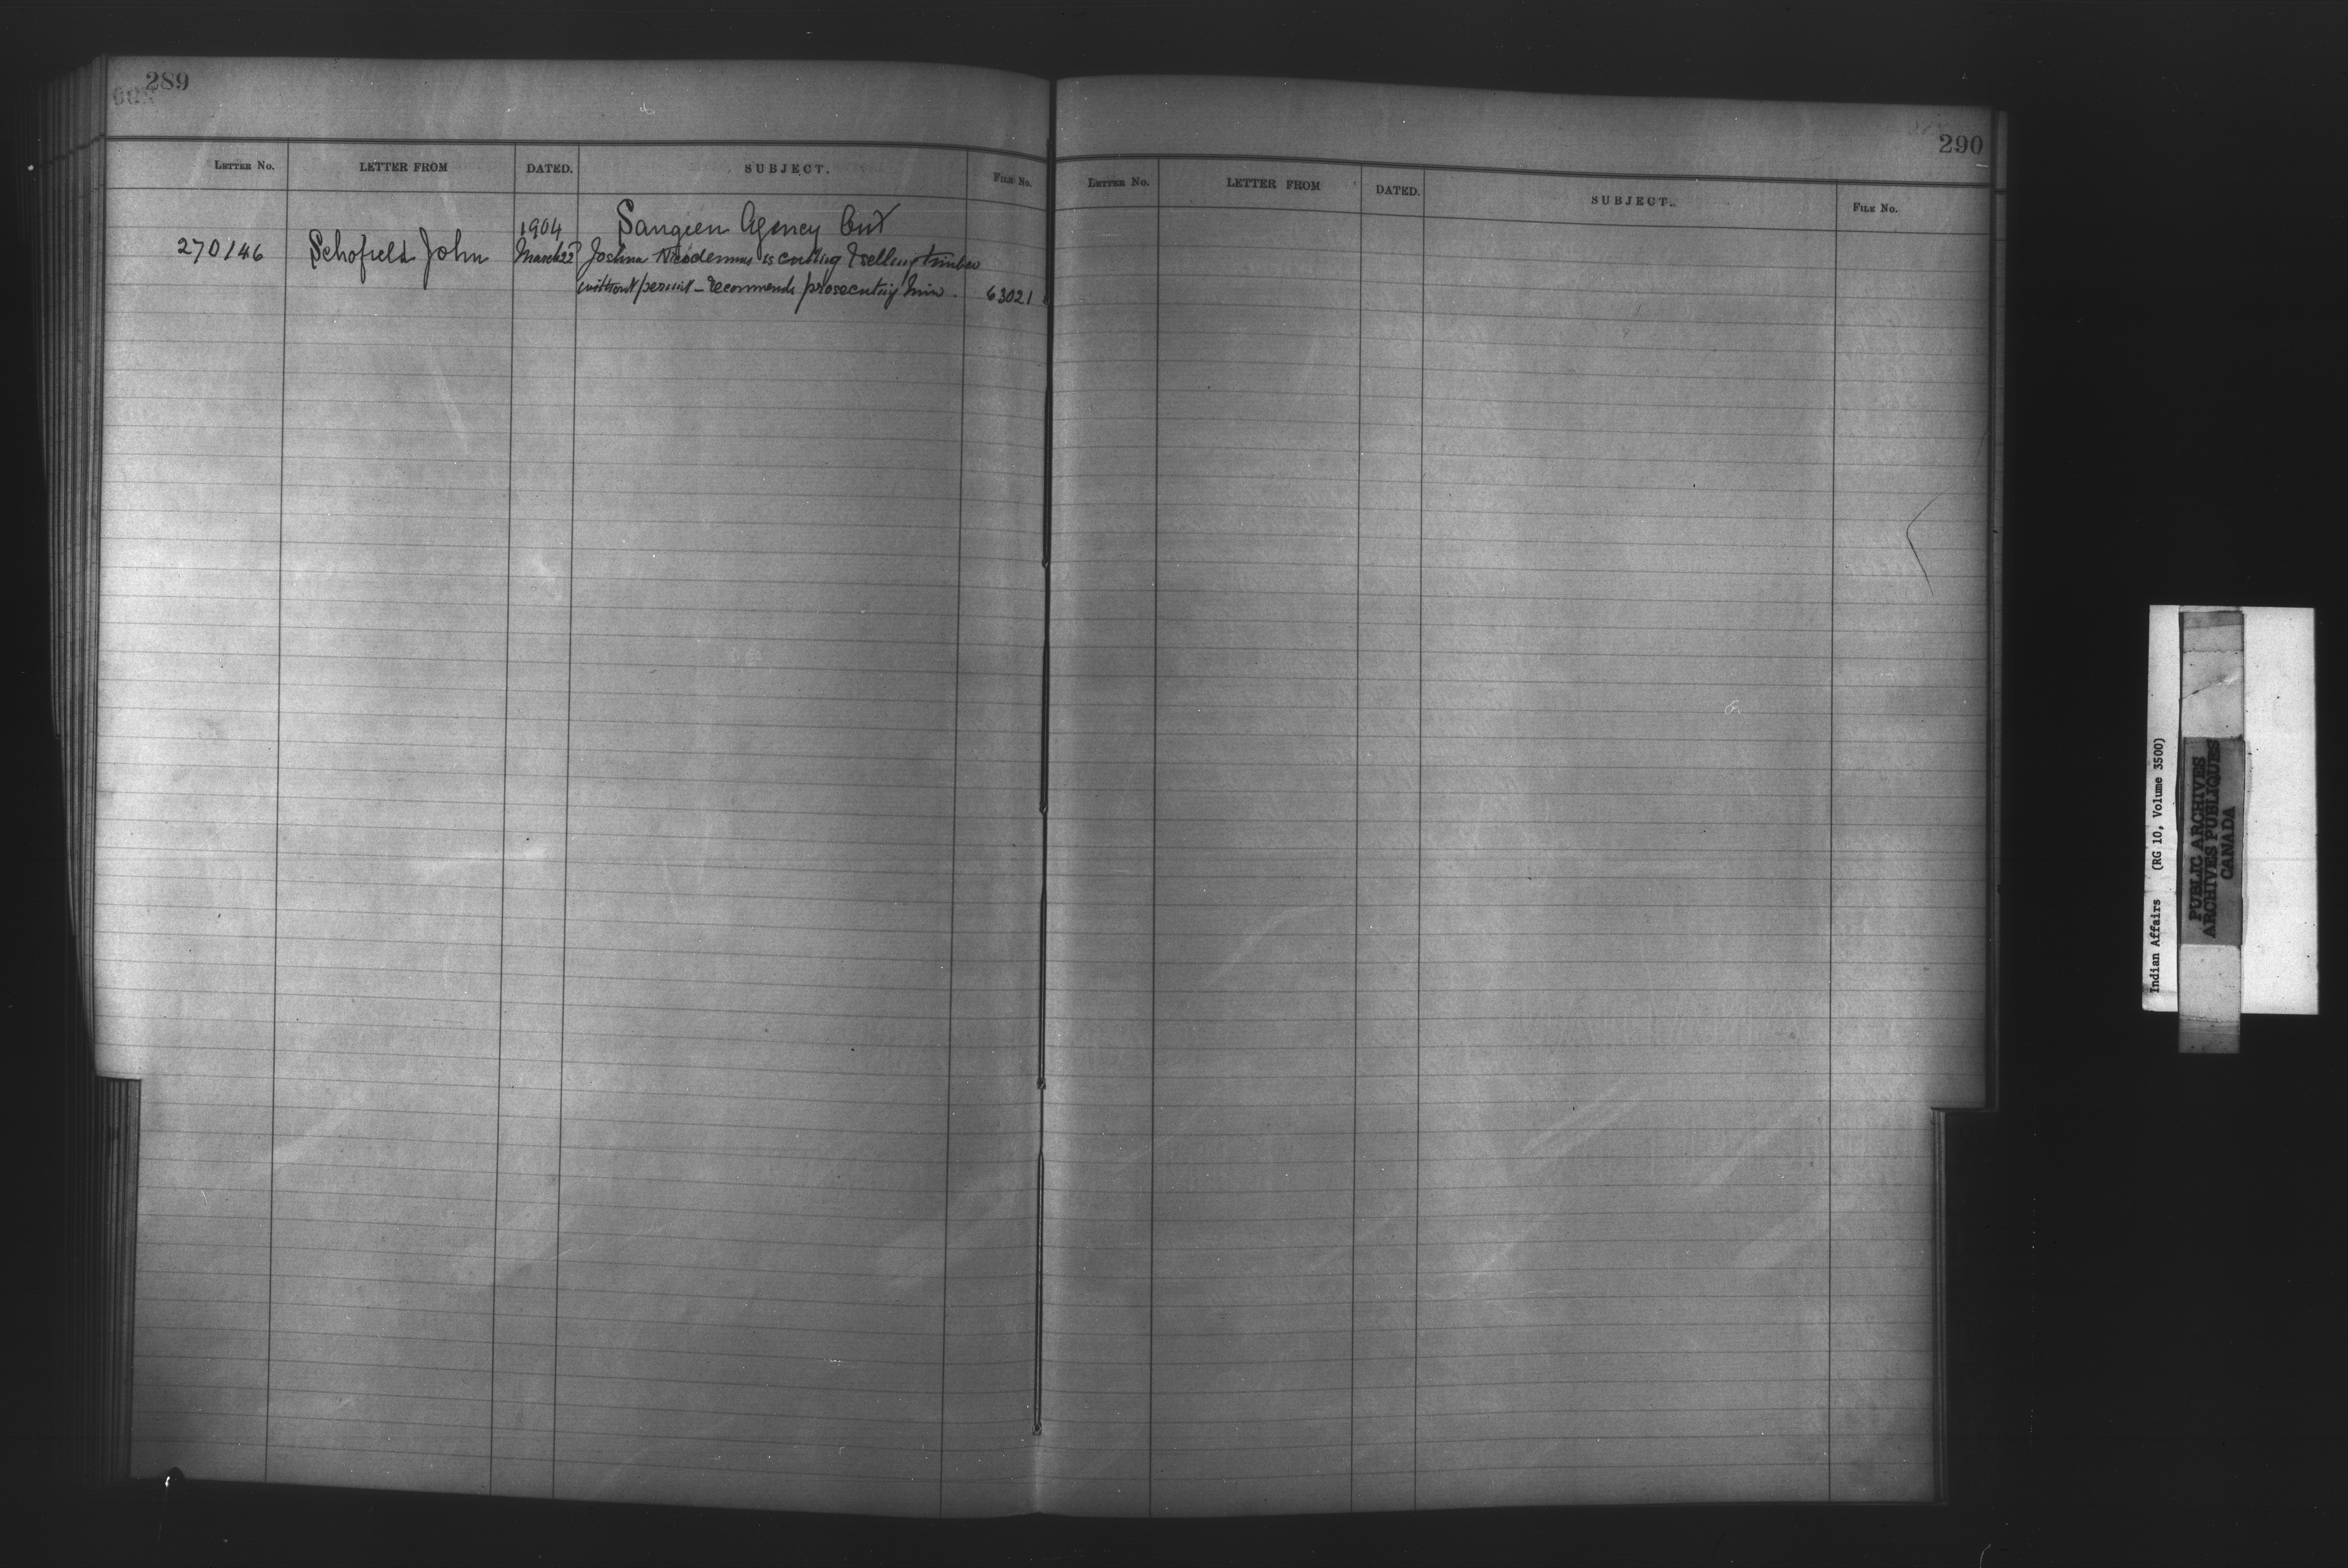 289
LETTER NO. LETTER FROM DATED. SUBJECT. FILE NO.
1904 Saugeen Agency Ont
270146 Schofield John March 22 Joshua Nicodemus is cutting & selling timber
without permit - recommends prosecuting him. 63021
290
LETTER NO. LETTER FROM DATED. SUBJECT. FILE NO.
Indian Affairs (RG 10, Volume 3500)
PUBLIC ARCHIVES
ARCHIVES PUBLIQUES
CANADA